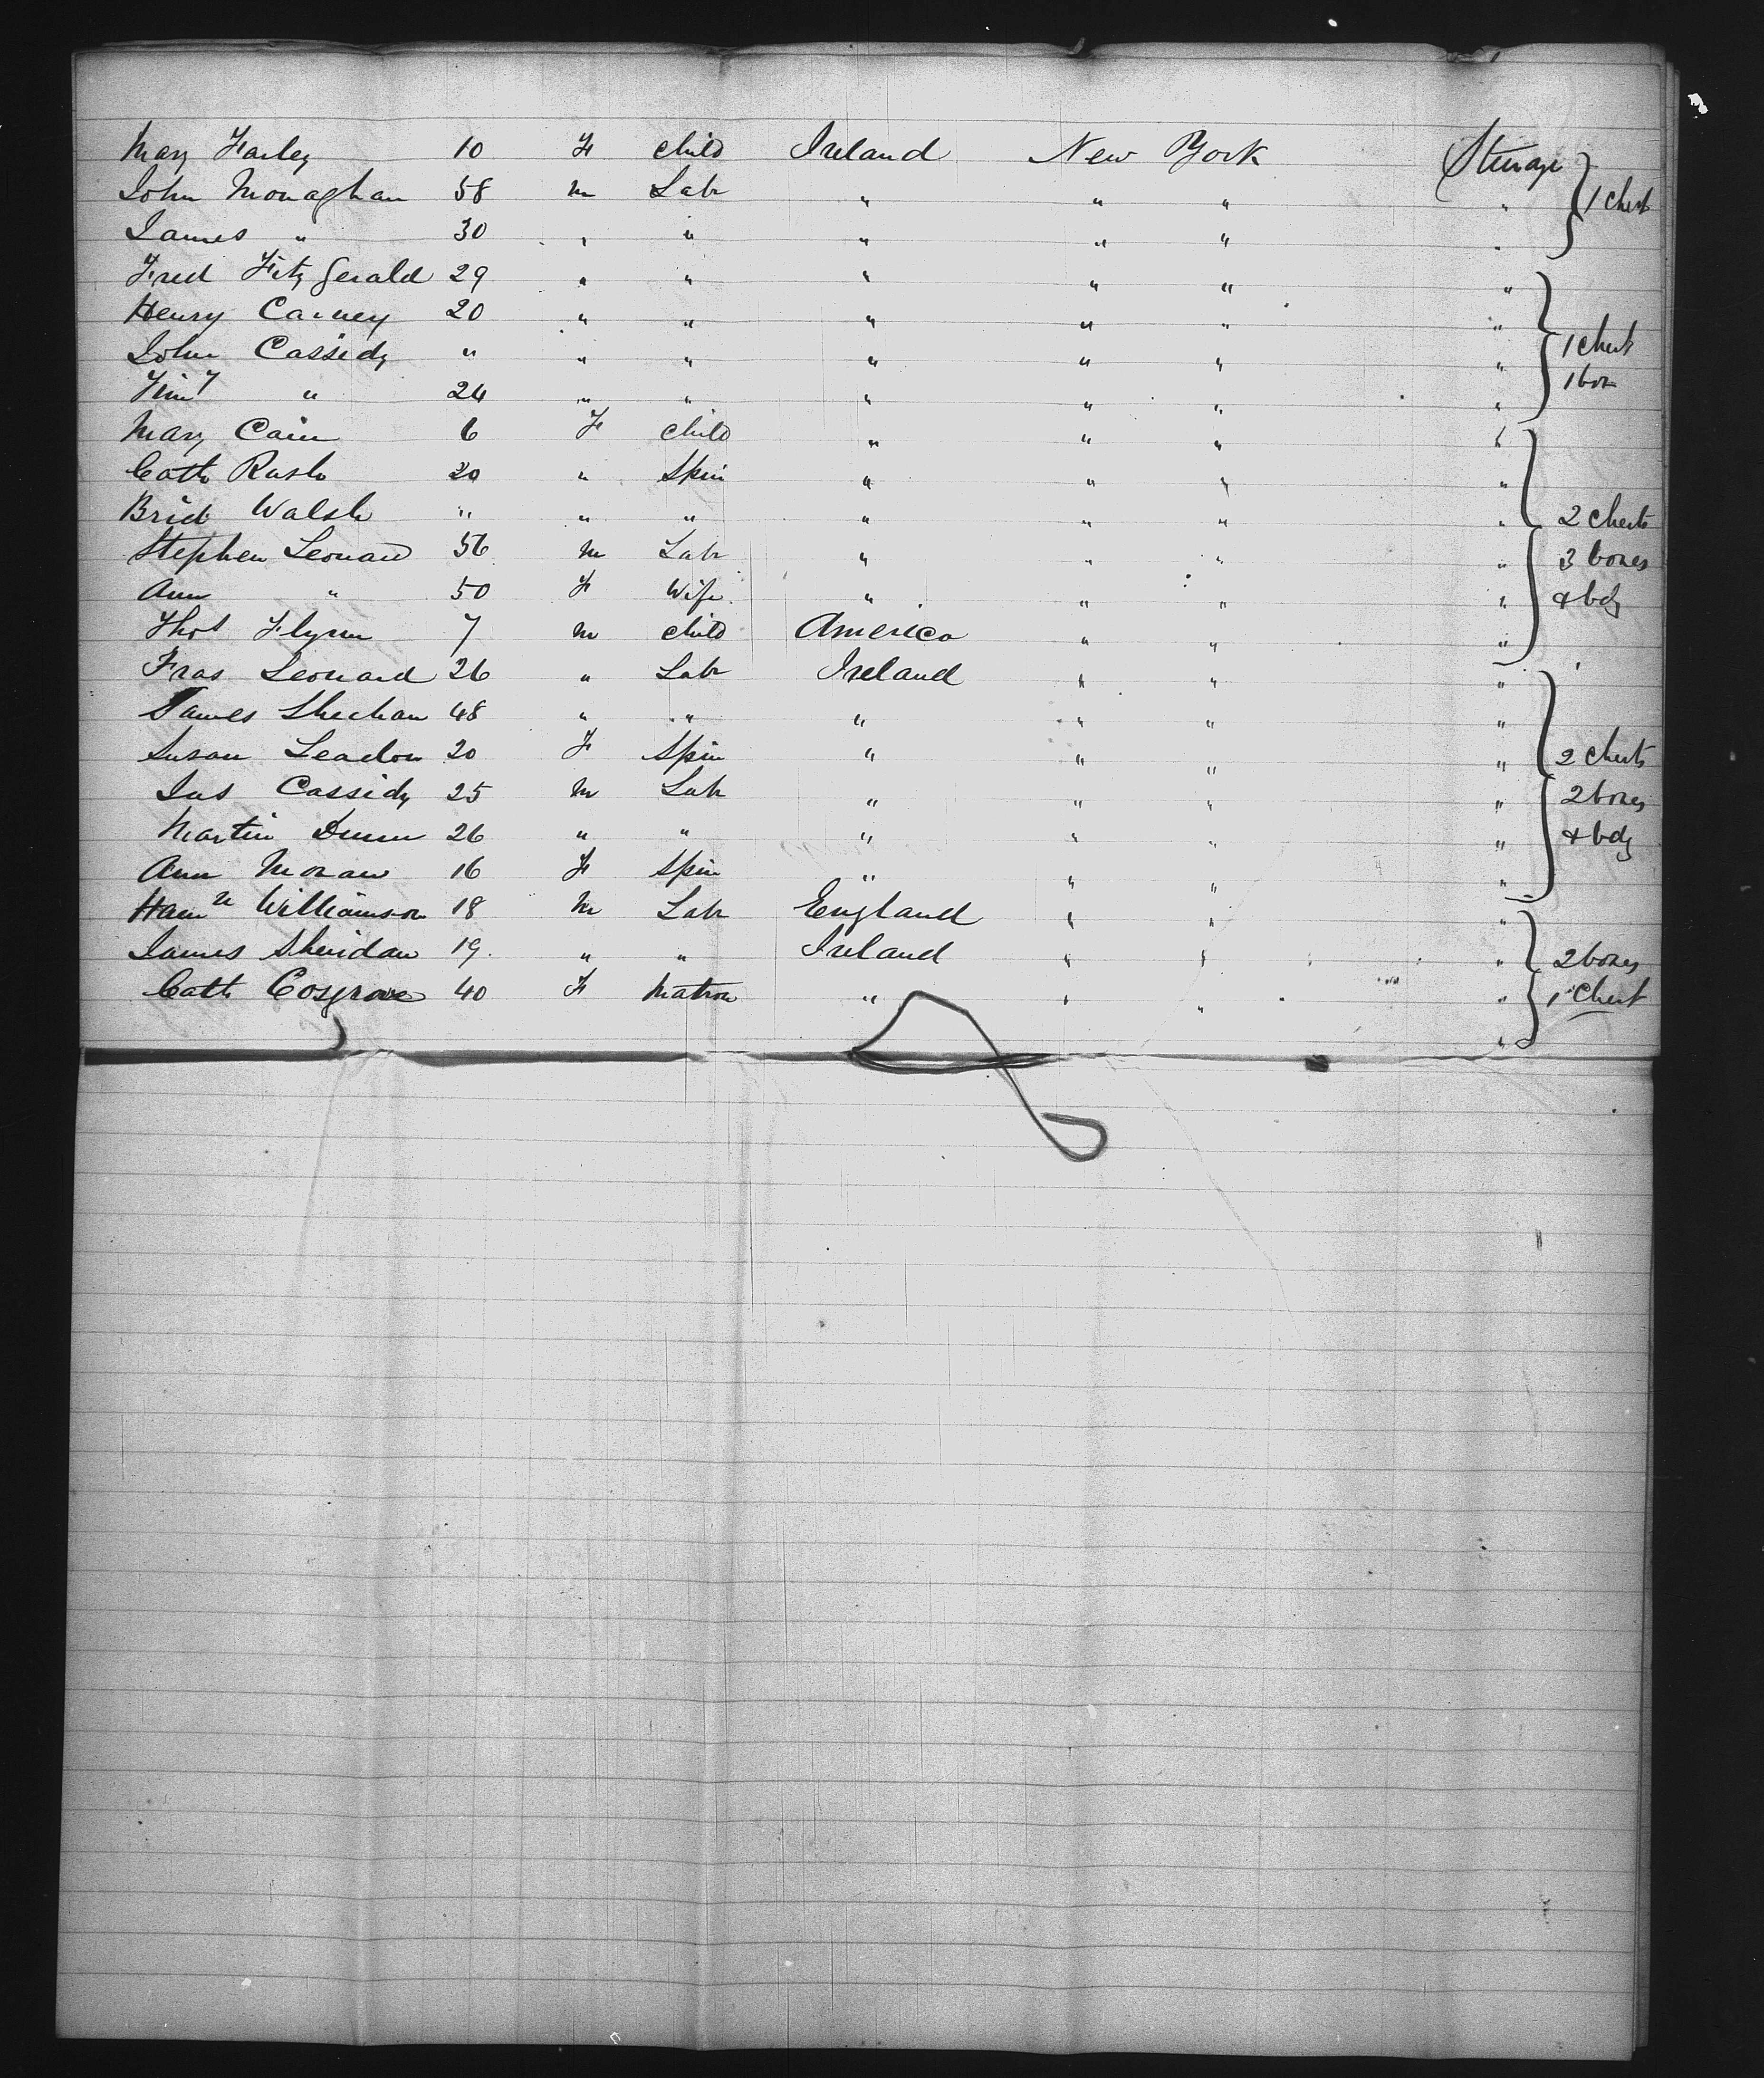 Mary Farley 10 F child Ireland New York Steerage
John Monaghan 58 m Labr " " " " } 1 Chest
James " 30 " " " " " "
Fred Fitzgerald 29 " " " " " "
Henry Carney 20 " " " " " "
John Cassidy " " " " " " " } 1 Chest
Timy " 24 " " " " " " 1 box
Mary Cain 6 F child " " " "
Cath Rush 20 " Spin " " " "
Brid Walsh " " " " " " " 2 Chests
Stephen Leonard 56 m Labr " " " " } 3 boxes
Ann " 50 F Wife " " " " & bdg
Thos Flynn 7 m child America " " "
Fras Leonard 26 " Labr Ireland " " "
James Sheehan 48 " " " " " "
Susan Leadon 20 F Spin " " " " 2 Chests
Jas Cassidy 25 m Labr " " " " } 2 boxes
Martin Dunn 26 " " " " " " & bdg
Ann Moran 16 F Spin " " " "
Williamson 18 m Labr England " " "
James Sheridan 19 " " Ireland " " " } 2 boxes
Cath Cosgrove 40 F Matron " " " " 1 Chest
"